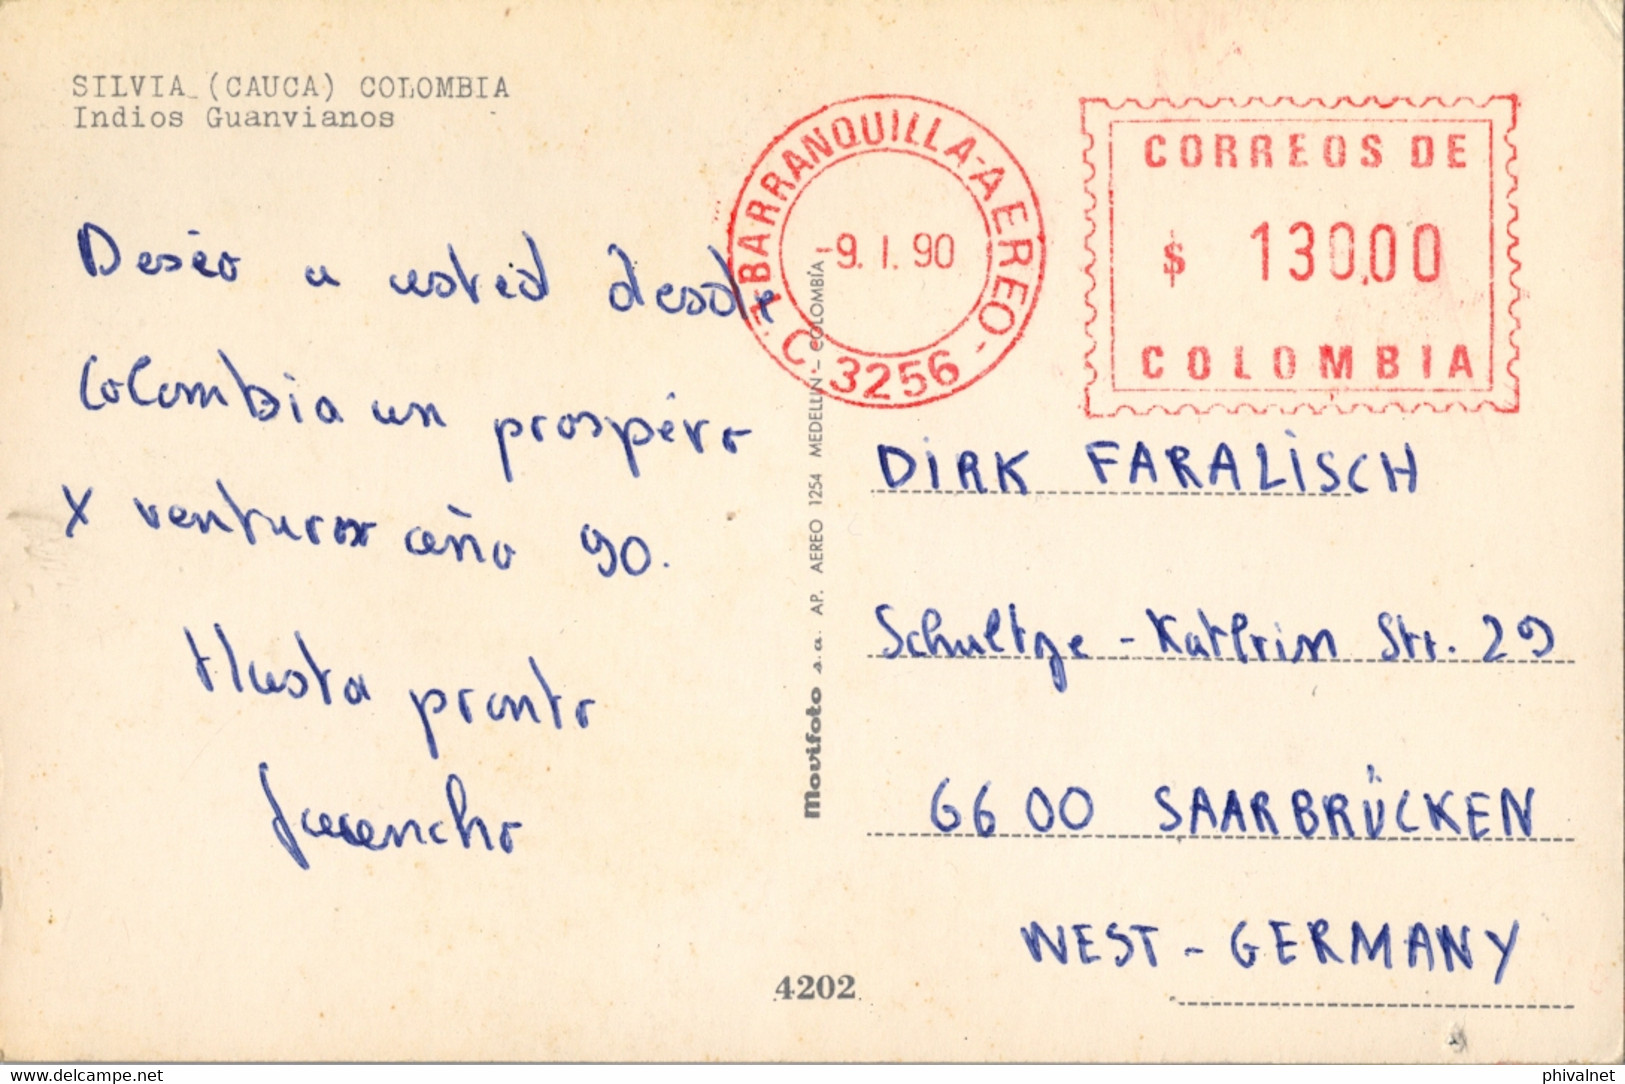 SILVIA (CAUCA) COLOMBIA
Indios Guanvianos
Deséo a usted desde
Colombia un prospéro
y venturoso año 90.
Hasta pronto
Juancho
BARRANQUILLA-AEREO-
C. 3256
-9. I. 90
CORREOS DE
$ 130,00
COLOMBIA
Movifoto s.a. AP. AEREO 1254 MEDELLIN - COLOMBIA
DIRK FARALISCH
Schultze-Kathrin Str. 29
6600 SAARBRÜCKEN
WEST-GERMANY
4202
delcampe.net
phivalnet